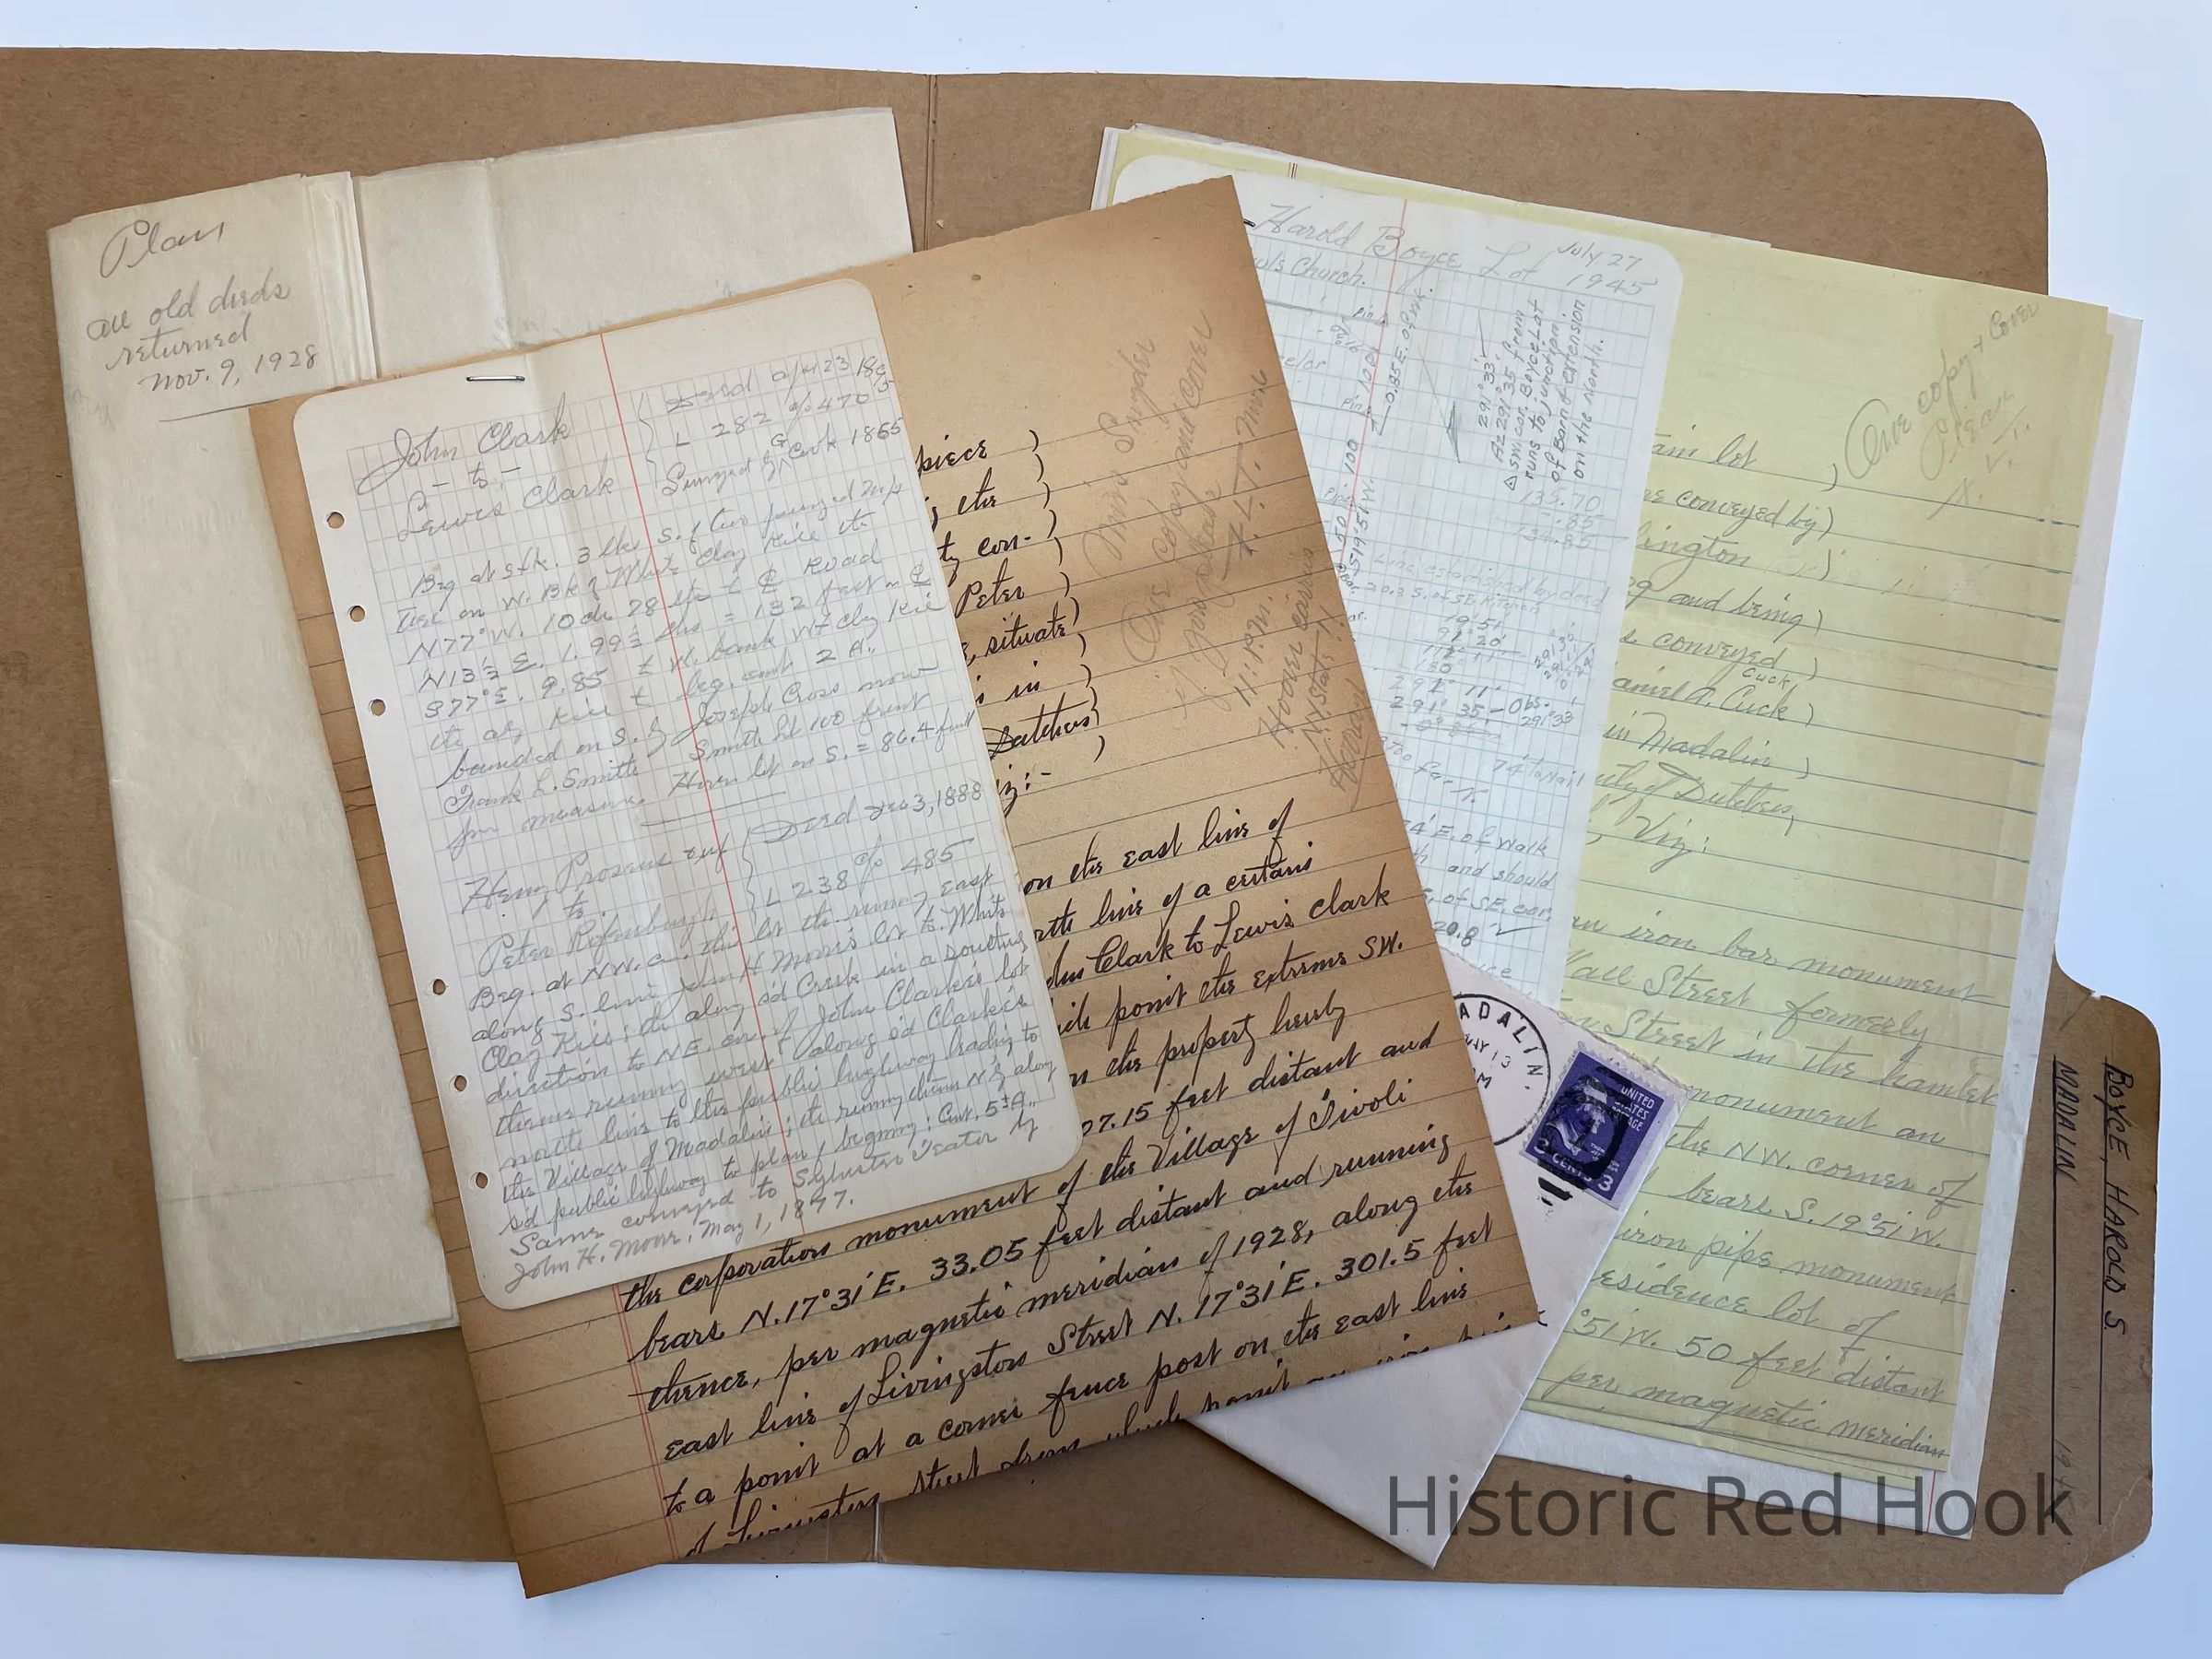 Plan
all old deeds
returned
Nov. 9, 1928
John Clark
- to -
Lewis Clark
Deed Apr 23
L 282 % 470
Surveyed by G Cook 1865
Beg at stk. 3 lks S. of two
on W. Bk of White Clay Kill
N77°W. 10 ch 78 lks to ₵ Road
N13½ E. 1.99½ chs = 132 feet in ₵
S77°E. 9.85 to W. bank Wt Clay Kil
Kill to beg. cont 2 A.
bounded on S. by Joseph Cross now
Frank L. Smith Smith lot 100 front
per measure. Hover lot on S. = 86.4 feet
Henry Prosens
to
Peter Rifenburgh
Deed Dec 3, 1888
L 238 % 485
Beg. at N.W. cor. this lot th. runng east
along S. line John H Moore's lot to White
Clay Kill; th along s'd Creek in a southerly
direction to NE. cor of John Clarke's lot
thence running west along s'd Clarke's
north line to the public highway leading to
the Village of Madalin; th running thence N'y along
s'd public highway to place of beginning; Cont. 5 A.
Same conveyed to Sylvester Teator by
John H. Moore, May 1, 1897.
piece )
the )
con- )
Peter )
situate )
in )
Dutchess )
viz:-
Miss Snyder
One copy and cover
if you please
F.L.T. Mrs
11:1 P.M.
Hoover carries
NY State !!
Hurrah
on the east line of
north line of a certain
Clark to Lewis Clark
point the extreme SW.
the property hereby
07.15 feet distant and
the corporation monument of the Village of Tivoli
bears N.17°31'E. 33.05 feet distant and running
thence, per magnetic meridian of 1928, along the
east line of Livingston Street N. 17°31'E. 301.5 feet
to a point at a corner fence post on the east line
of Livingston Street from which point an iron
Harold Boyce Lot July 27
1945
Church.
Pin
0.85 E. of Mk.
Pin
100
Pipe
50
S19°51'W.
291°33' ✓
△ Az 291°35' from
SW. cor. Boyce Lot
runs to junction
of Barn & extension
on the North.
135.70
.85
134.85
Line established by deed
20.3 S. of SE. Kitchen
19°51'
91°20'
111°11'
180
291°11'
291°35' - Obs.
291°33
74' to Nail
74' E. of Walk
and should
of SE. cor.
20.8 ✓
MADALIN.
MAY 13
UNITED
STATES
POSTAGE
3 CENTS 3
One copy + Cover
Please
lot )
conveyed by )
and being )
conveyed )
Cuck
Daniel A. Cuck )
in Madalin )
of Dutchess,
Viz:
an iron bar monument
Street formerly
Street in the hamlet
monument an
the N.W. corner of
bears S. 19°51'W.
iron pipe monument
residence lot of
°51'W. 50 feet distant
per magnetic meridian
BOYCE, HAROLD S.
MADALIN
Historic Red Hook